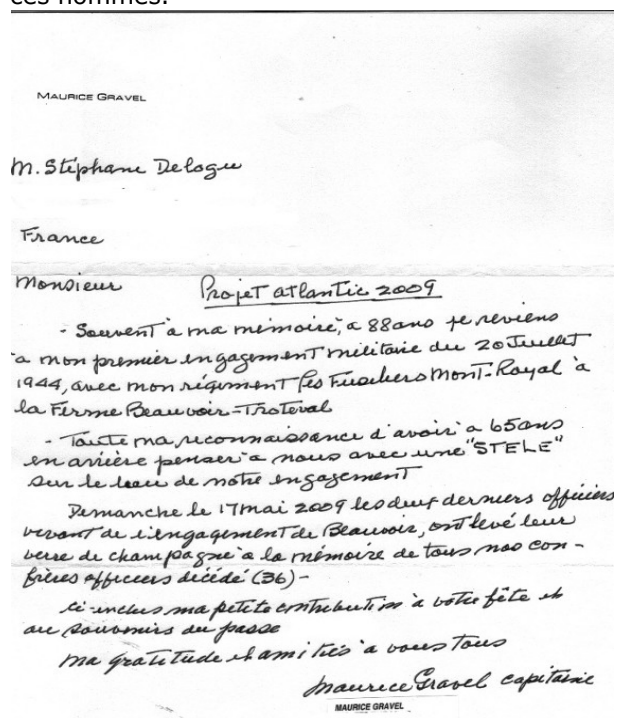 ces hommes.
MAURICE GRAVEL
M. Stéphane Delogu
France
Monsieur
Projet atlantic 2009
- Souvent à ma mémoire, à 88 ans je reviens
à mon premier engagement militaire du 20 Juillet
1944, avec mon régiment les Fusiliers Mont-Royal à
la Ferme Beauvoir-Troteval
- Toute ma reconnaissance d'avoir à 65 ans
en arrière penser à nous avec une "STELE"
sur le lieu de notre engagement
Dimanche le 17 mai 2009 les deux derniers officiers
vivant de l'engagement de Beauvoir, ont levé leur
verre de champagne à la mémoire de tous nos con-
frères officiers décédé (36) -
ci-inclus ma petite contribution à votre fête et
au souvenirs du passe
Ma gratitude et amitiés à vous tous
Maurice Gravel capitaine
MAURICE GRAVEL